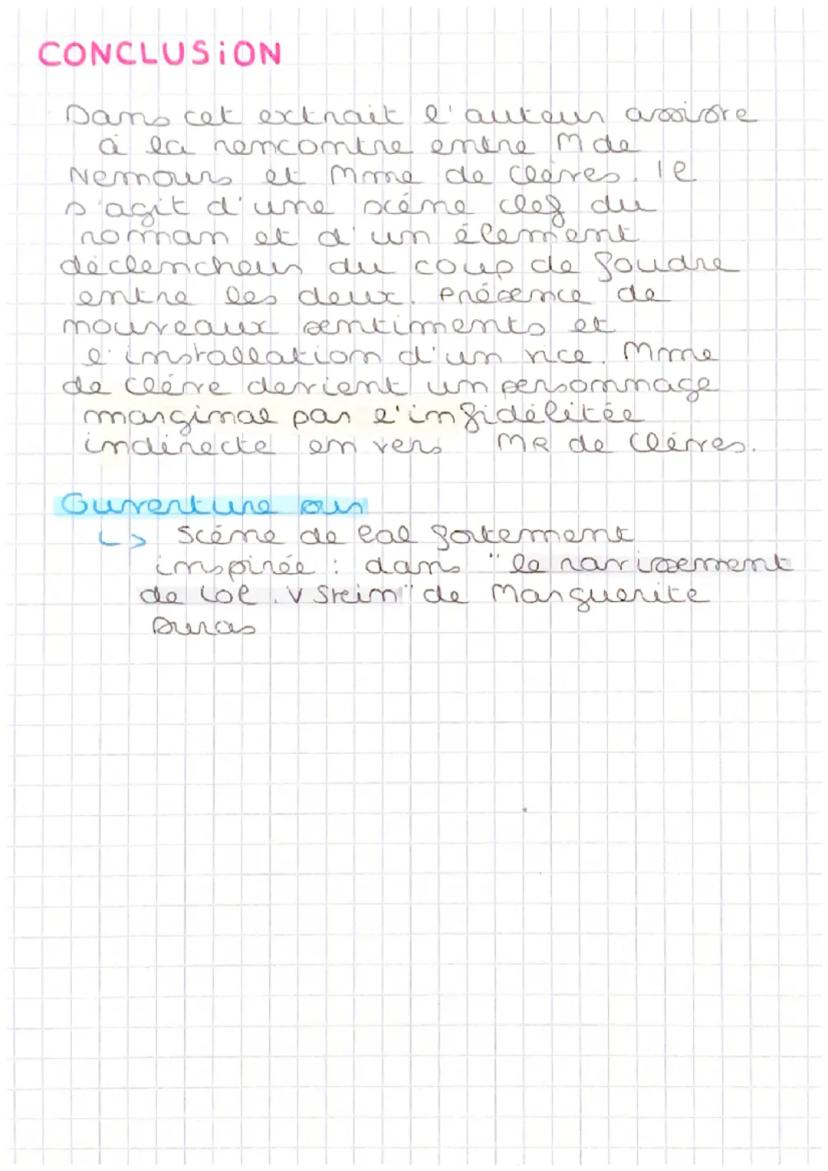 CONCLUSiON
Dans cet extrait l'auteur assiste
à la rencontre entre M de
Nemours et Mme de Clèves. Il
s'agit d'une scéne clef du
roman et d'un élement
déclencheur du coup de foudre
entre les deux. Présence de
nouveaux sentiments et
l'installation d'un vice. Mme
de Cléve devient un personnage
marginal par l'infidélitée
indirecte en vers MR de Cléves.
Ouverture sur
↳ Scéne de bal fortement
inspirée : dans "le ravissement
de Lol. V Stein" de Marguerite
Duras